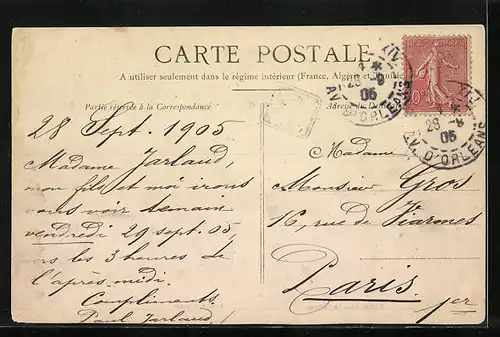 CARTE POSTALE
A utiliser seulement dans le régime intérieur (France, Algérie et Tunisie
Partie réservée à la Correspondance
Adresse du
28 Sept. 1905
Madame Jarlaud,
mon fils et moi irons
vous voir demain
vendredi 29 sept. 05,
vers les 3 heures de
l'après midi.
Compliments
Paul Jarlaud
Madame
Monsieur Gros
16, rue de Viarmes
Paris
1er
28 9
05
AV. D'ORLEANS
28
05
AV. D'ORLEANS
10